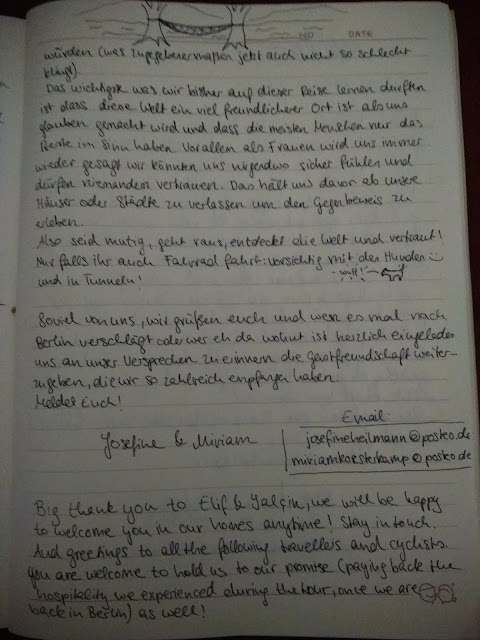 NO DATE
würden (was zugegebenermaßen jetzt auch nicht so schlecht
klingt).
Das wichtigste was wir bisher auf dieser Reise lernen durften
ist dass diese Welt ein viel freundlicherer Ort ist als uns
glauben gemacht wird und dass die meisten Menschen nur das
Beste im Sinn haben. Vorallem als Frauen wird uns immer
wieder gesagt wir könnten uns nirgendwo sicher fühlen und
dürfen niemandem vertrauen. Das hält uns davor ab unsere
Häuser oder Städte zu verlassen um den Gegenbeweis zu
erleben.
Also seid mutig, geht raus, entdeckt die Welt und vertraut!
Nur falls ihr auch Fahrrad fahrt: vorsichtig mit den Hunden
und in Tunneln! wuff!
Soviel von uns, wir grüßen euch und wen es mal nach
Berlin verschlägt oder wer eh da wohnt ist herzlich eingeladen
uns an unser Versprechen zu erinnern die Gastfreundschaft weiter-
zugeben, die wir so zahlreich empfangen haben.
Meldet Euch!
Email:
Josefine & Miriam
josefineheilmann@posteo.de
miriamkoesterkamp@posteo.de
Big thank you to Elif & Yalçin, we will be happy
to welcome you in our homes anytime! Stay in touch.
And greetings to all the following travellers and cyclists
you are welcome to hold us to our promise (paying back the
hospitality we experienced during the tour, once we are
back in Berlin) as well!